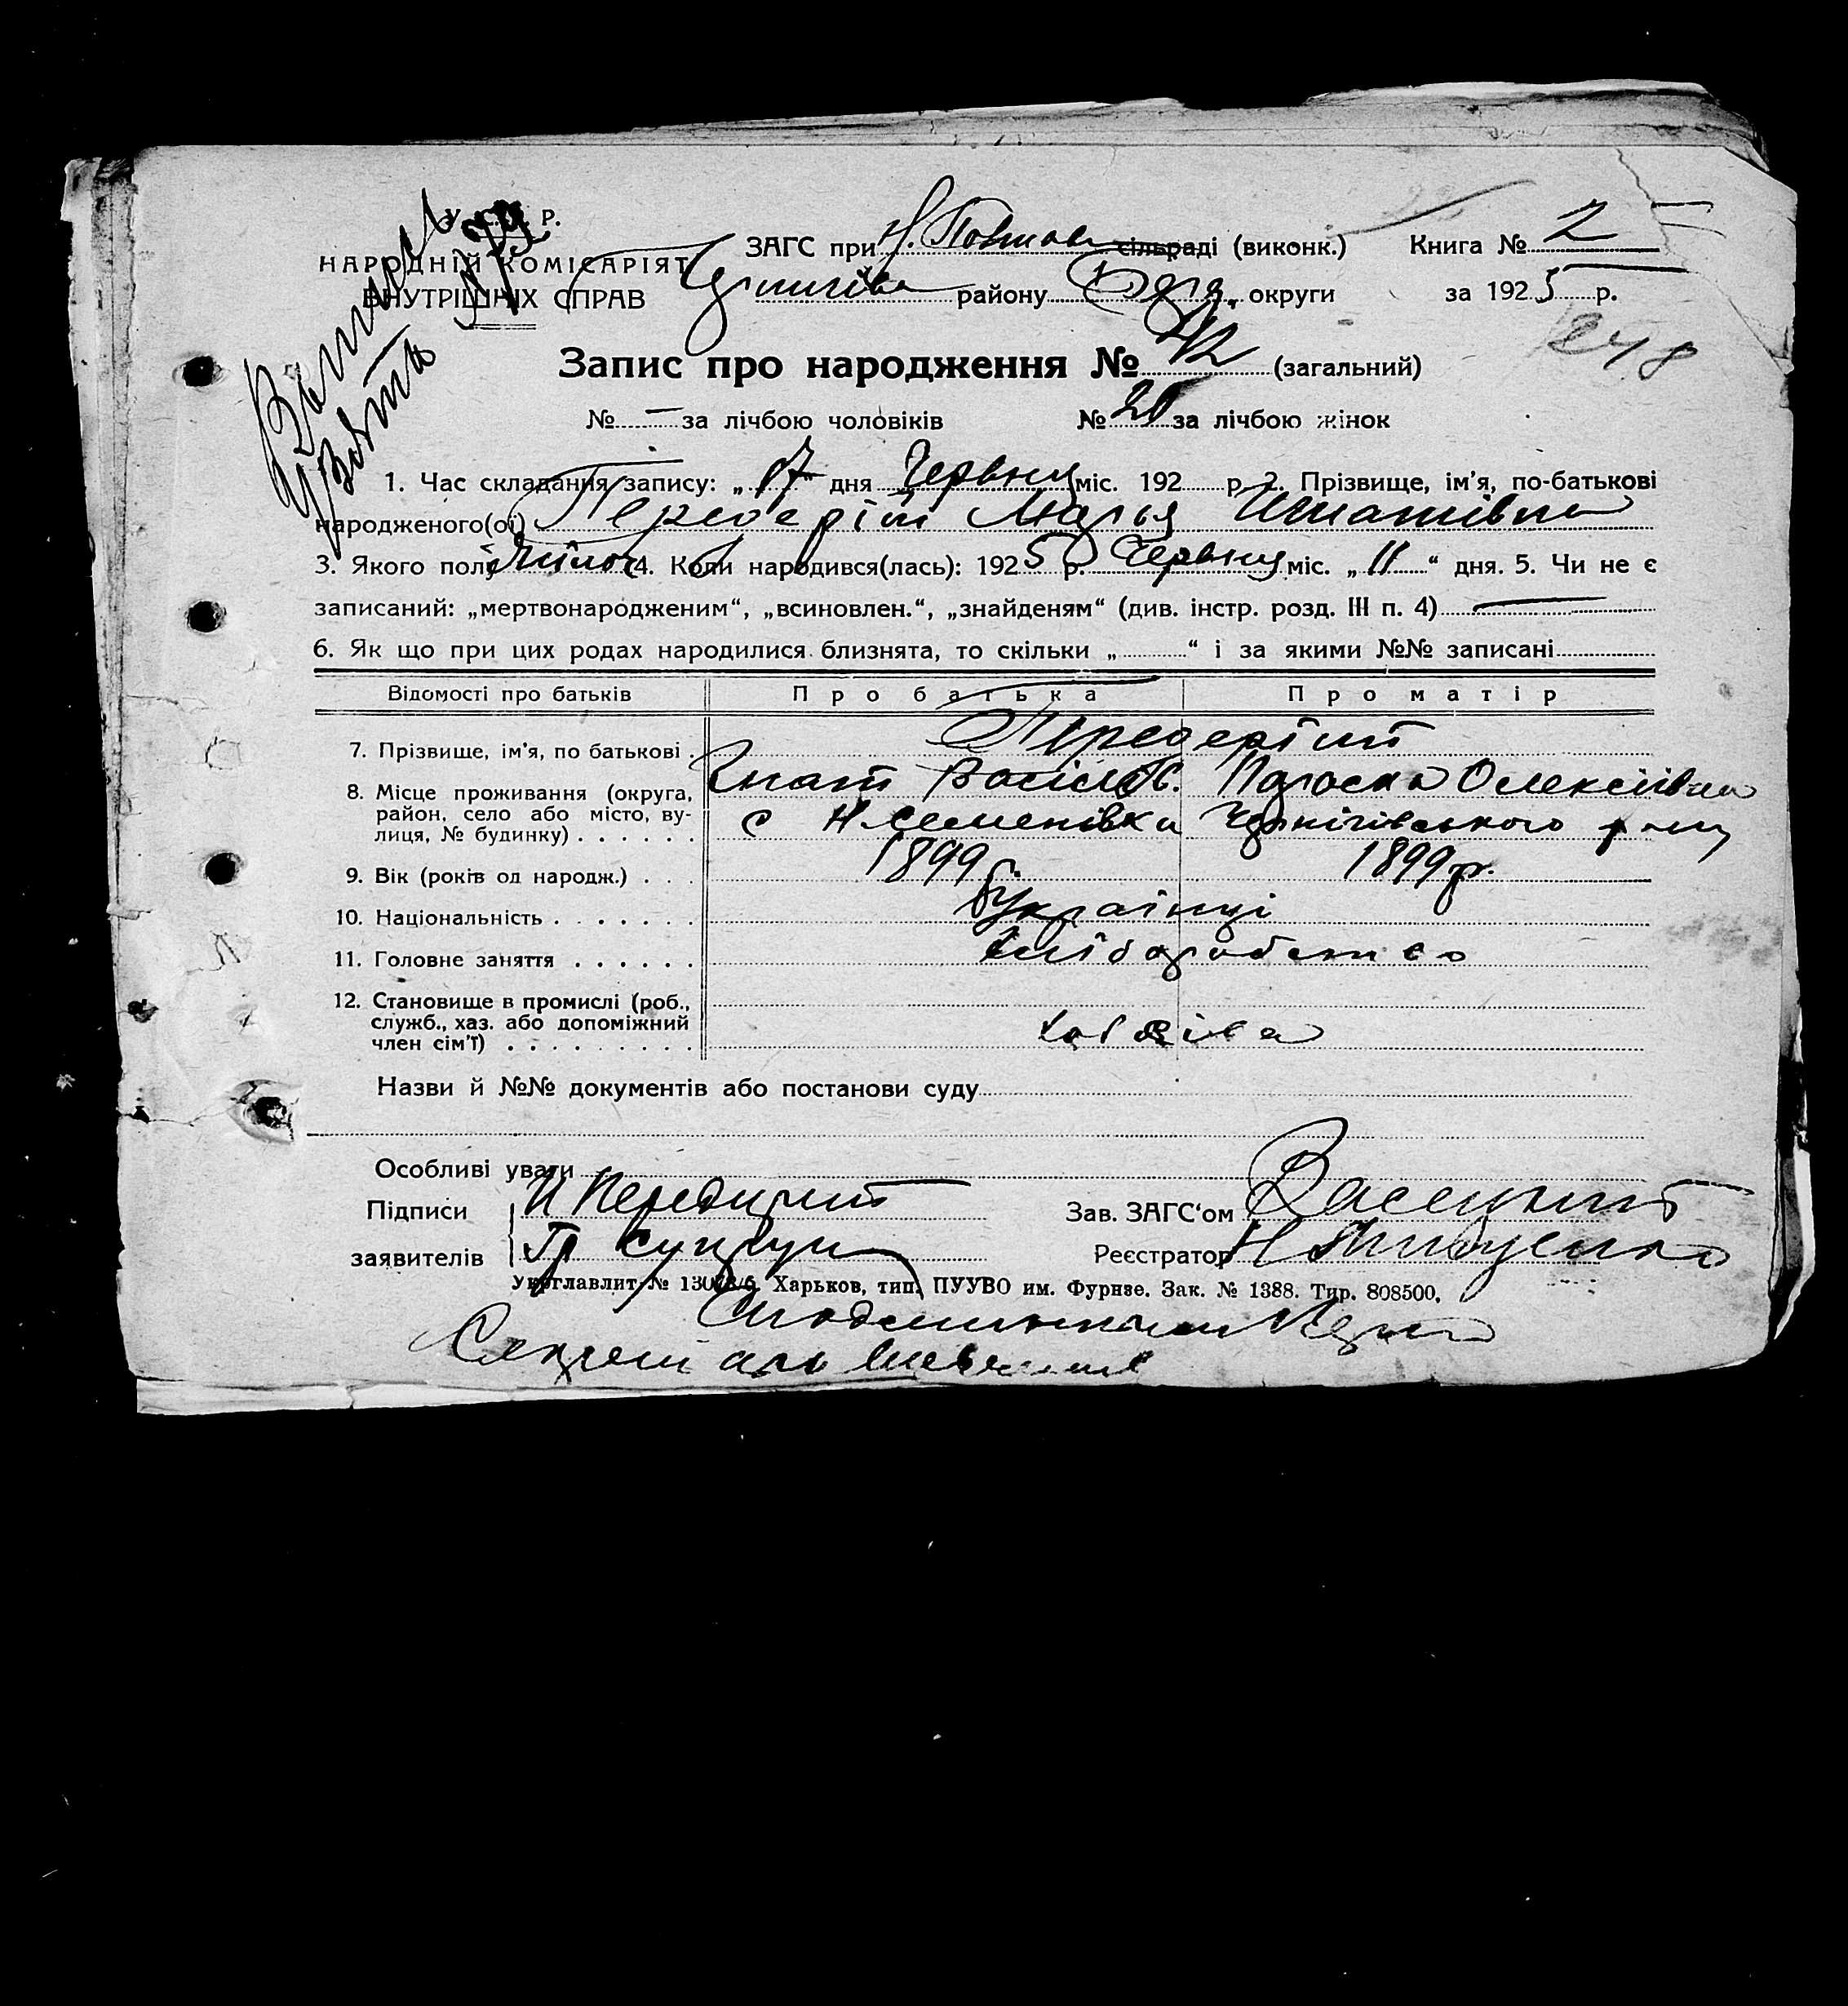 У. С. Р. Р.
НАРОДНІЙ КОМІСАРІЯТ
ВНУТРІШНІХ СПРАВ
ЗАГС при Н. сільраді (виконк.) Книга № 2
району округи за 1925 р.
248
Запис про народження № 42 (загальний)
№ — за лічбою чоловіків № за лічбою жінок
1. Час складання запису: „17“ дня Червня міс. 192 р. 2. Прізвище, ім'я, по-батькові
народженого(ої) Передерій Марья Игнатівна
3. Якого полу 4. Коли народився(лась): 1925 р. Червня міс. „11“ дня. 5. Чи не є
записаний: „мертвонародженим“, „всиновлен.“, „знайденям“ (див. інстр. розд. III п. 4) —
6. Як що при цих родах народилися близнята, то скільки „ “ і за якими №№ записані
Відомості про батьків Про батька Про матір
7. Прізвище, ім'я, по батькові Передерії
Гнат Васильов. Параска Олексіївна
8. Місце проживання (округа,
район, село або місто, ву-
лиця, № будинку) с Н. Семенівка Чернігівського р-ну
9. Вік (років од народж.) 1899 р. 1899 р.
10. Національність Українці
11. Головне заняття хліборобство
12. Становище в промислі (роб.,
служб., хаз. або допоміжний
член сім'ї)
Назви й №№ документів або постанови суду
Особливі уваги
Підписи И Передирий Зав. ЗАГС'ом Васецкий
заявителів Реєстратор
Укрглавлит № Харьков, тип. ПУУВО им. Фрунзе. Зак. № 1388. Тир. 808500.